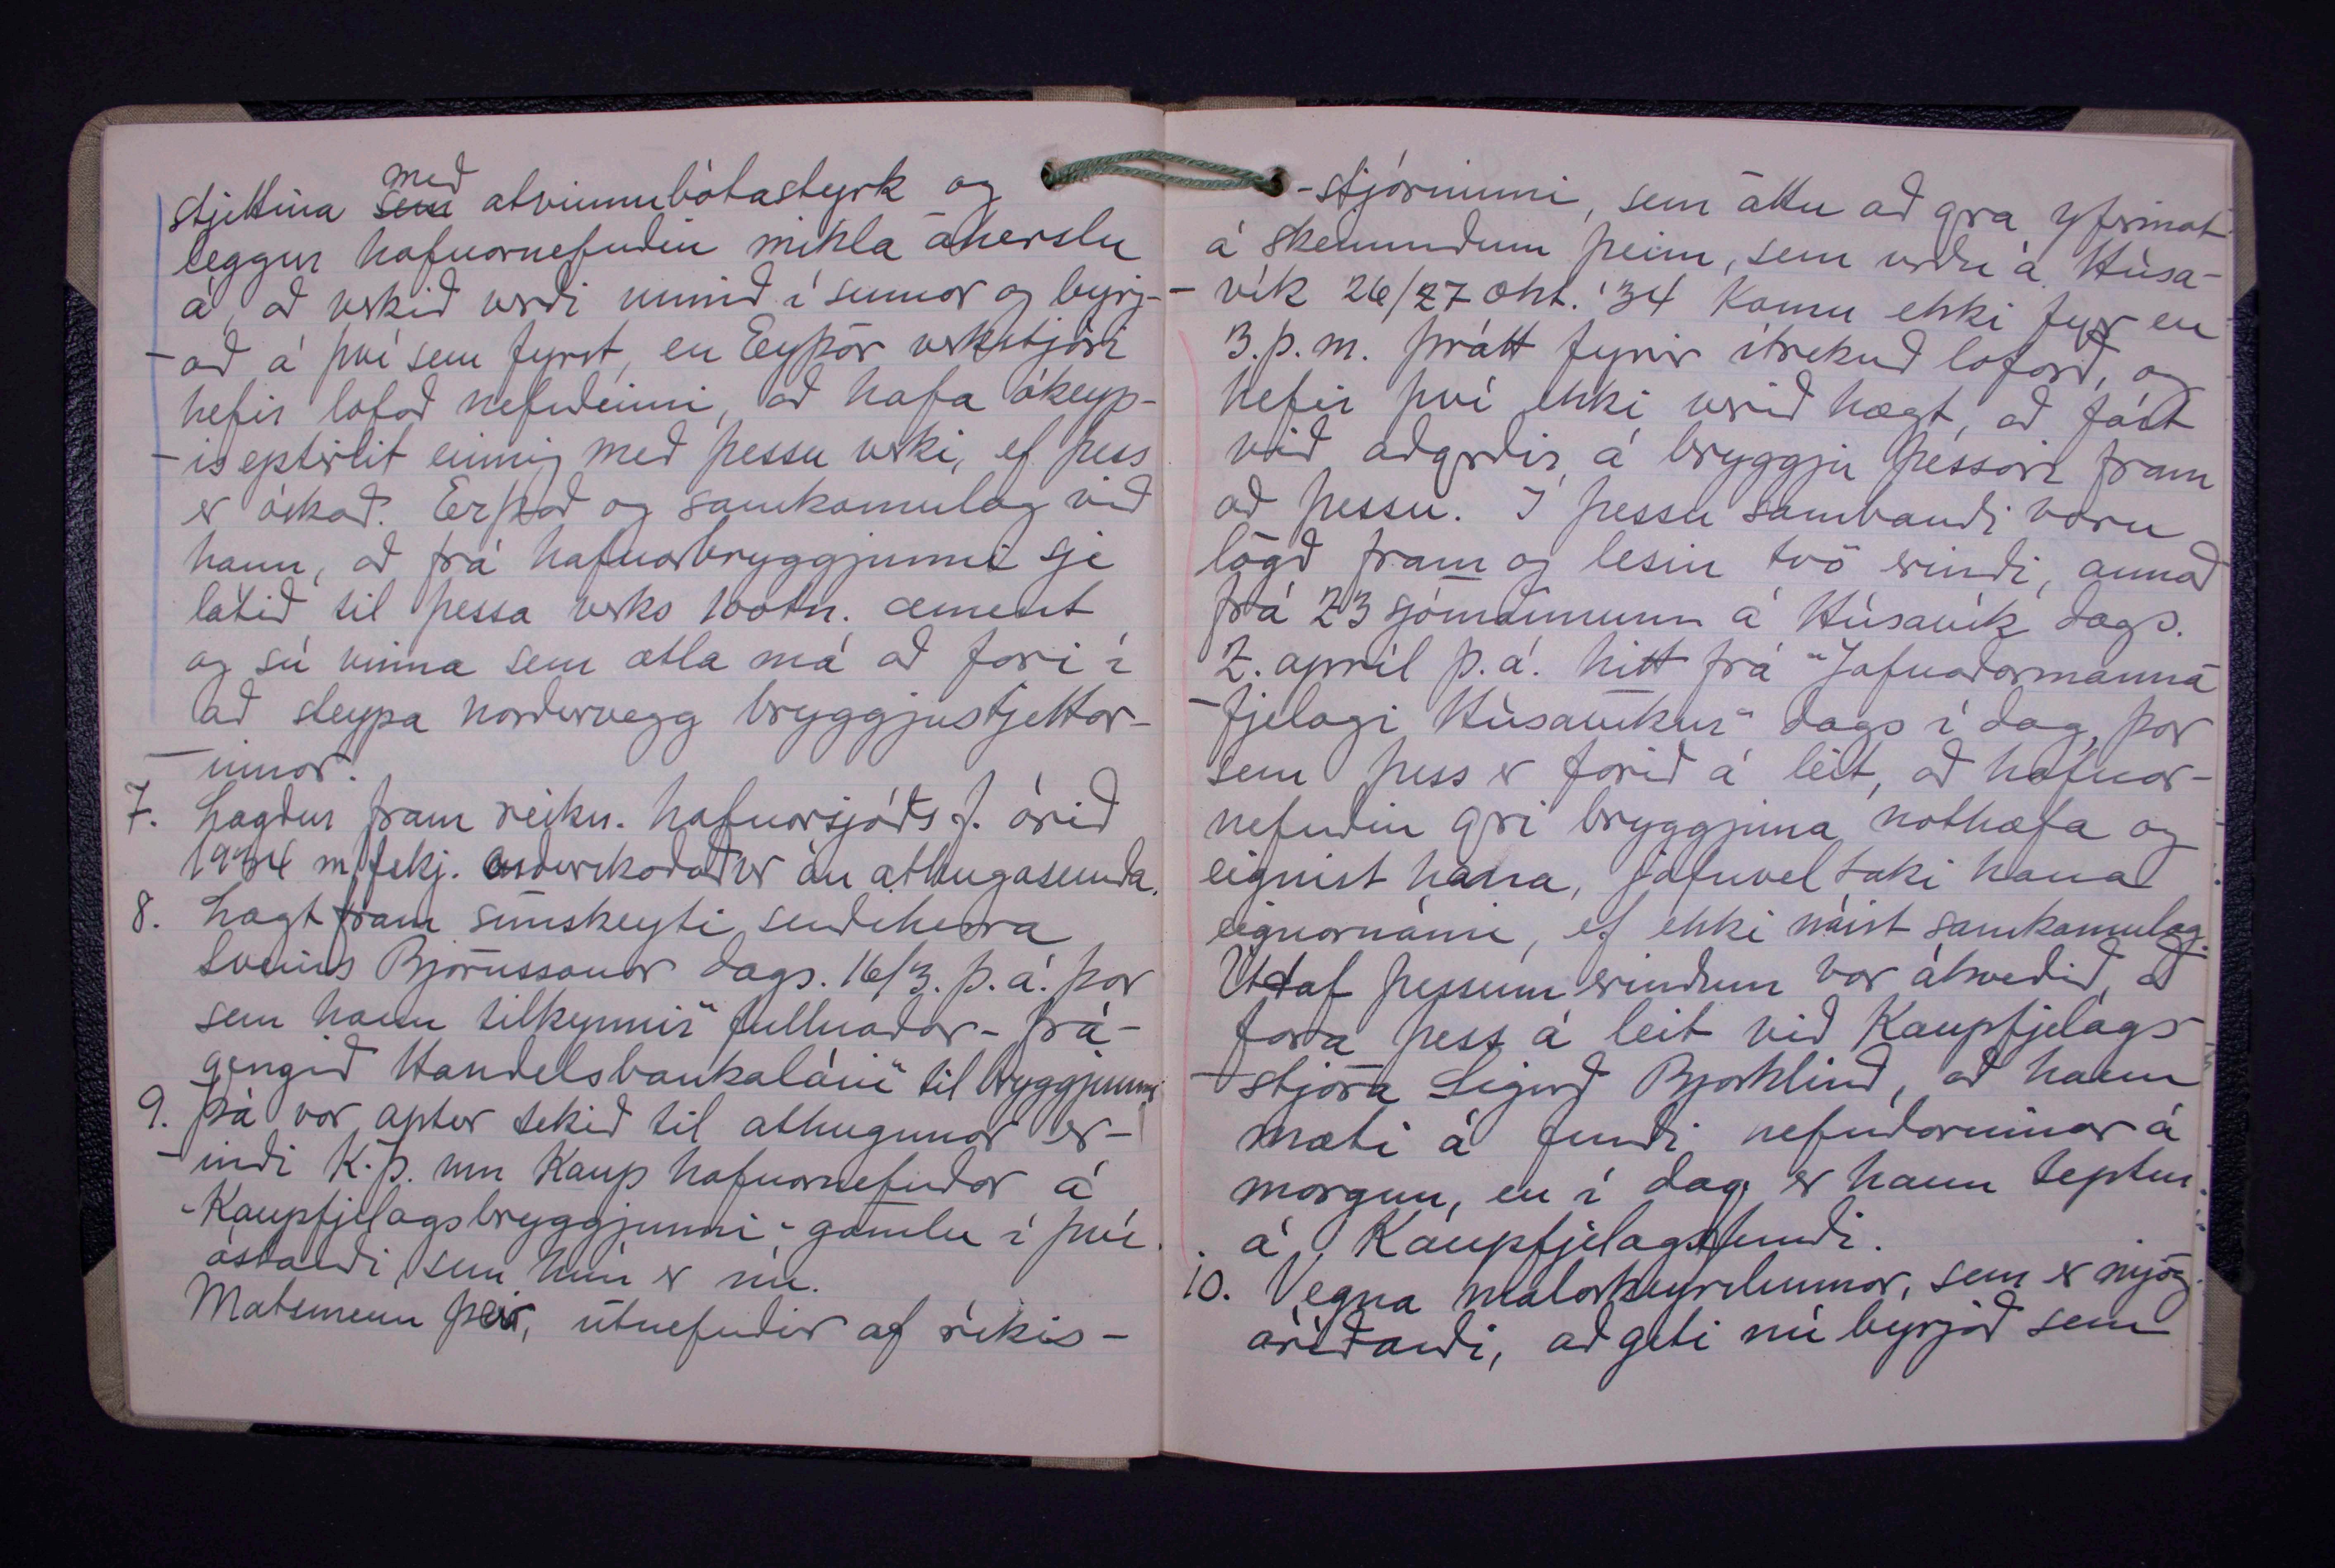 stjettina með sem atvinnubótastyrk og
leggur hafnarnefndin mikla áherslu
á, að verkið verði unnið í sumar og byrj-
-að á því sem fyrst, en Eyþór verkstjóri
hefir lofað nefndinni, að hafa ókeyp-
-is eptirlit einnig með þessu verki, ef þess
er óskað. Er það og samkomulag við
hann, að frá hafnarbryggjunni sje
látið til þessa verks 100 tn. cement
og sú vinna sem ætla má að fari í
að steypa norðurvegg bryggjustjettar-
-innar.
7. Lagður fram reikn. hafnarsjóðs f. árið
1934 m/fskj. endurskoðaður án athugasemda.
8. Lagt fram símskeyti sendiherra
Sveins Björnssonar dags. 16/3. þ.á. þar
sem hann tilkynnir "fullnaðar-frá-
gengið Handelsbankalánið" til bryggjunnar
9. Þá var aptur tekið til athugunar er-
-indi K.Þ. um kaup hafnarnefndar á
"Kaupfjelagsbryggjunni" gömlu í því
ástandi sem hún er nú.
Matsmenn þeir, útnefndir af ríkis-
-stjórninni, sem áttu að gera yfirmat
á skemmdum þeim, sem urðu á Húsa-
-vík 26/27 okt. '34 komu ekki fyr en
3. þ.m. þrátt fyrir ítrekuð loforð, og
hefir því ekki verið hægt, að fást
við aðgerðir á bryggju þessari fram
að þessu. Í þessu sambandi voru
lögð fram og lesin tvö erindi, annað
frá 23 sjómönnum á Húsavík dags.
2. apríl þ.á. hitt frá "Jafnaðarmanna
-fjelagi Húsavíkur" dags í dag, þar
sem þess er farið á leit, að hafnar-
nefndin geri bryggjuna nothæfa og
eignist hana, jafnvel taki hana
eignarnámi, ef ekki náist samkomulag.
Útaf þessum erindum var ákveðið, að
fara þess á leit við Kaupfjelags
-stjóra Sigurð Bjarklind, að hann
mæti á fundi nefndarinnar á
morgun, en í dag er hann tepptur
á Kaupfjelagsfundi.
10. Vegna malarkeyrslunnar, sem er mjög
áríðandi, að geti nú byrjað sem